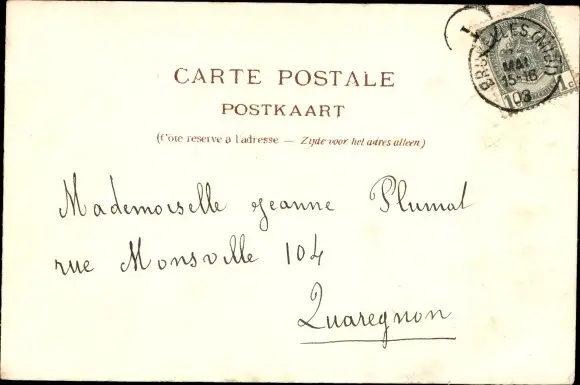 CARTE POSTALE
POSTKAART
(Côté réservé à l'adresse — Zijde voor het adres alleen)
BRUXELLES (MIDI)
MAI
15-16
1903
1c
Mademoiselle Jeanne Plumat
rue Monsville 104
Quaregnon